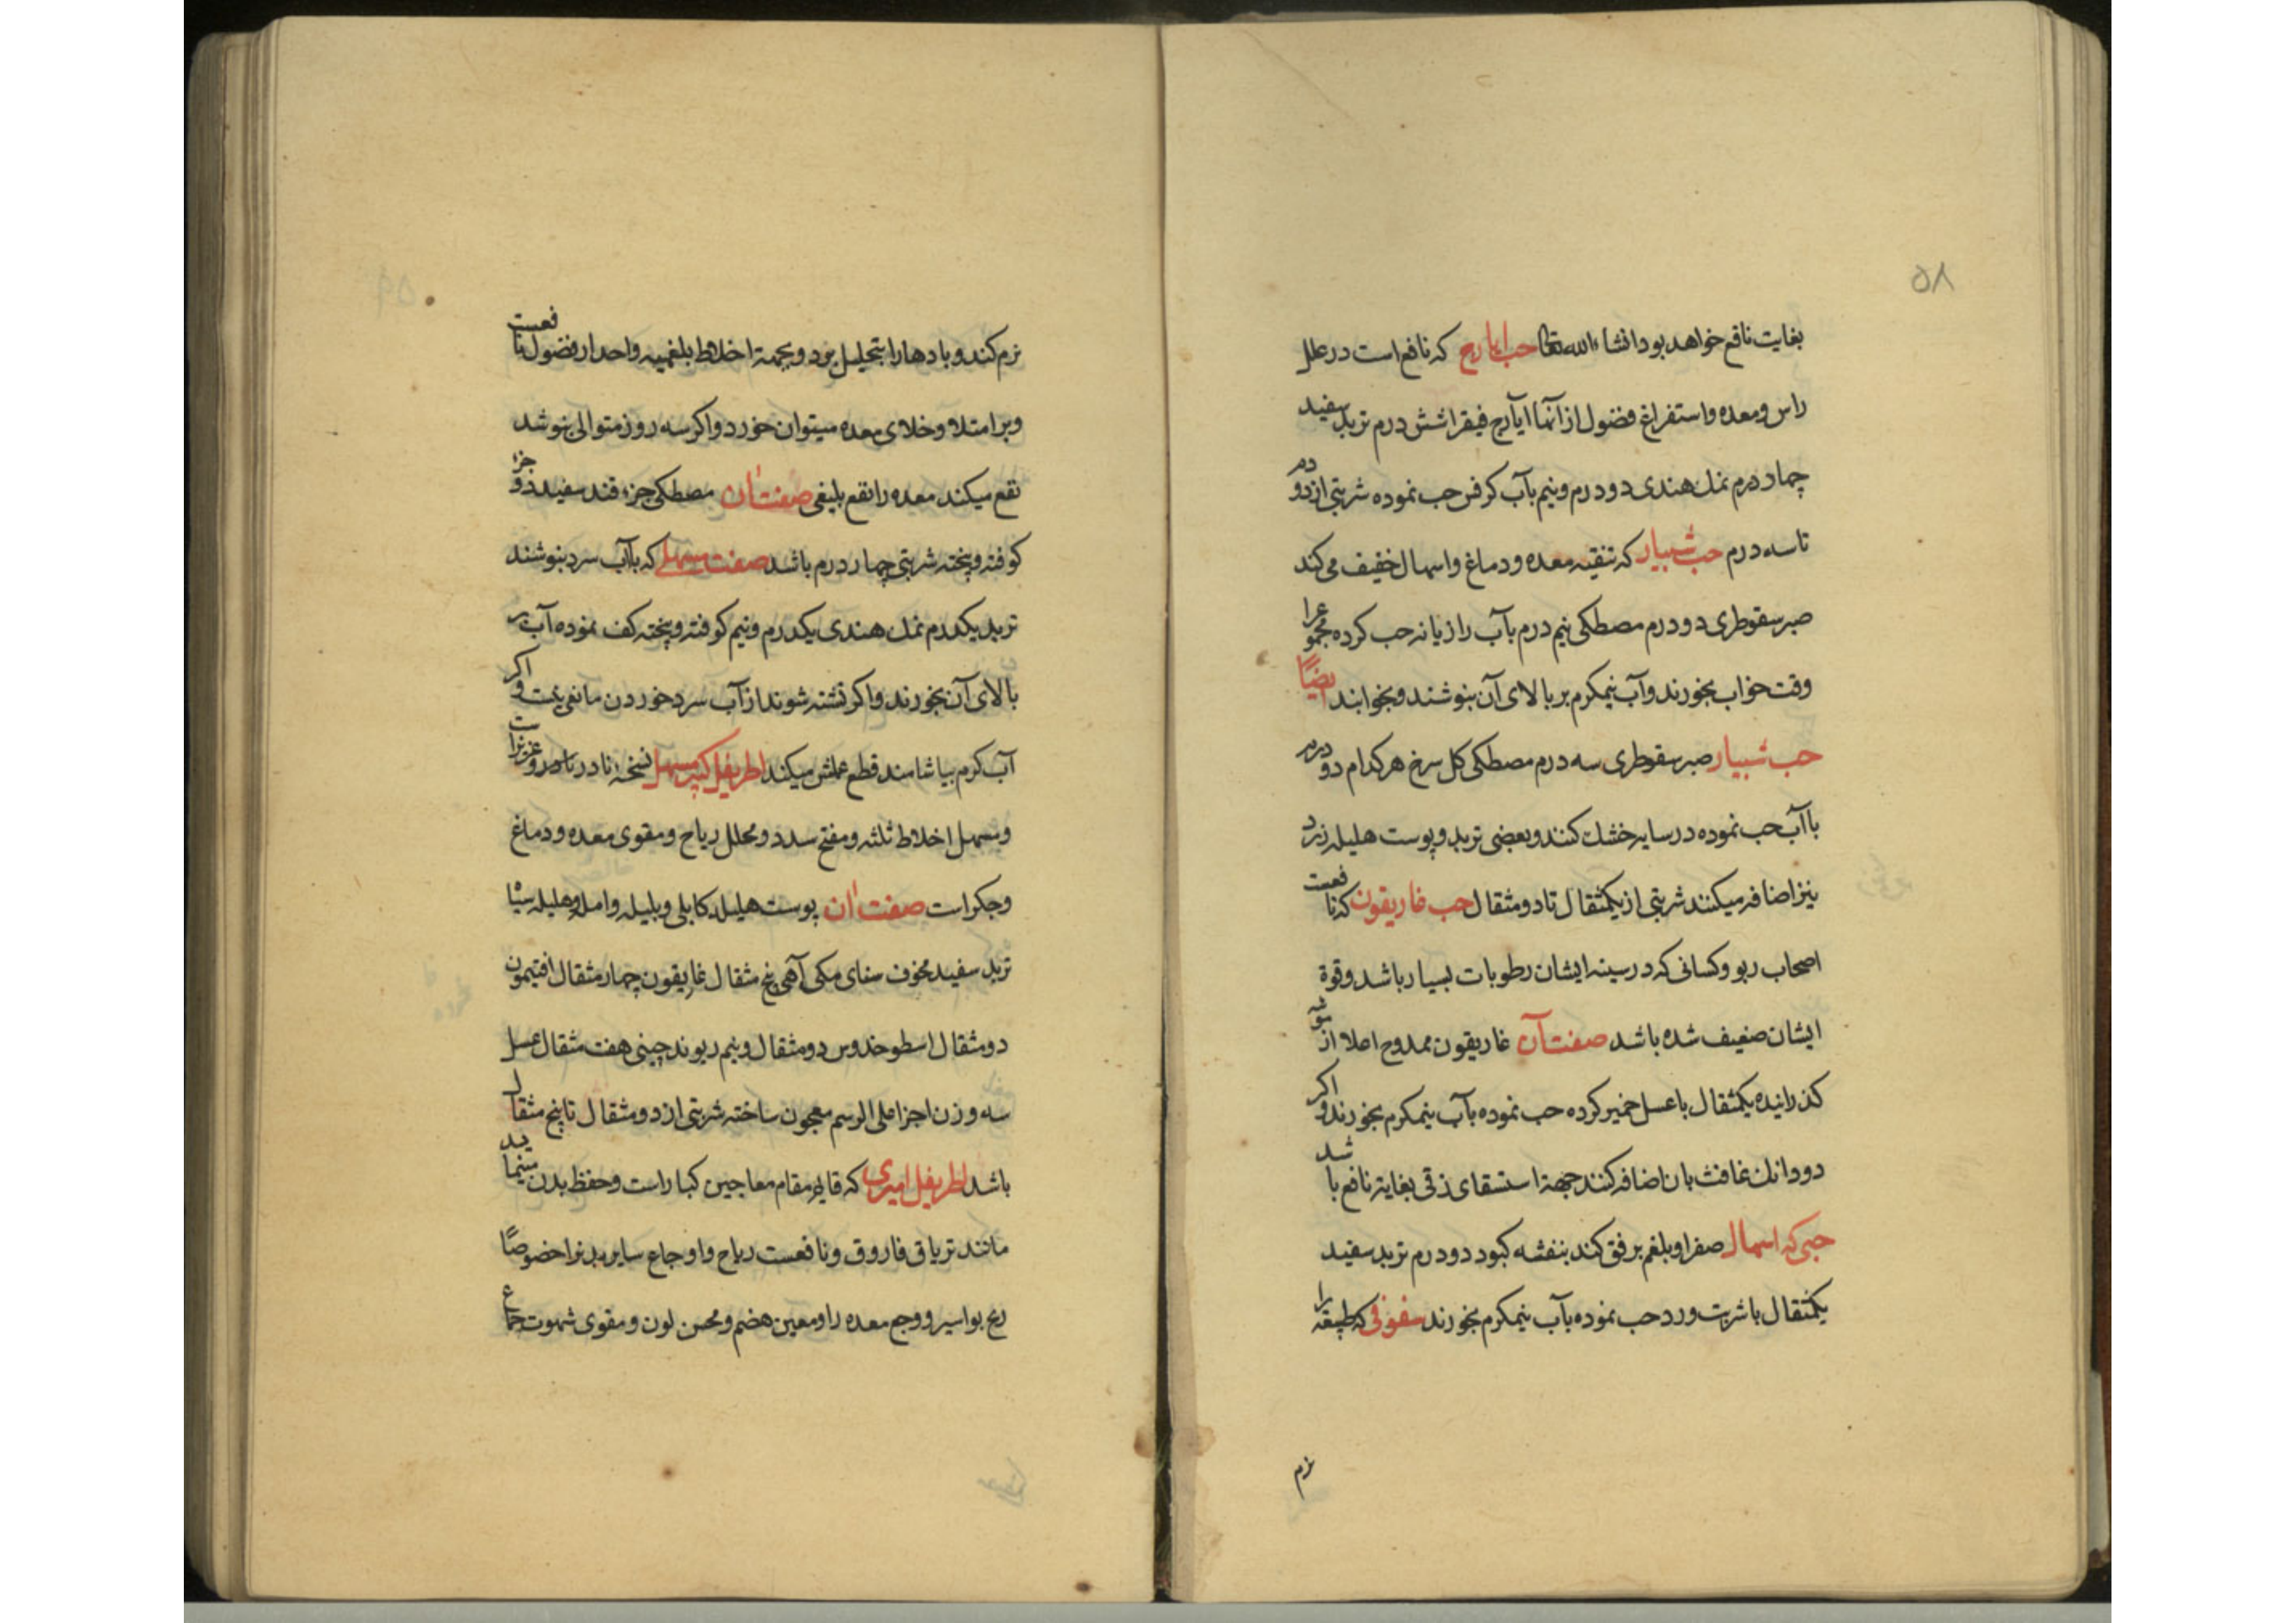 ۵۸
بغایت نافع خواهد بود انشاء الله تعالی حب ایارج که نافع است در علل
راس و معده و استفراغ فضول از آنها ایارج فیقرا شش درم تربد سفید
چهار درم نمک هندی دو درم و نیم بآب کرفس حب نموده شربتی از دو درم
تا سه درم حب شبیار که تنقیه معده و دماغ و اسهال خفیف می کند
صبر سقوطری دو درم مصطکی نیم درم بآب رازیانه حب کرده مجموعرا
وقت خواب بخورند و آب نیمکرم بر بالای آن بنوشند و بخوابند ایضًا
حب شبیار صبر سقوطری سه درم مصطکی کل سرخ هر کدام دو درم
با آب حب نموده در سایه خشک کنند و بعضی تربد و پوست هلیله زرد
نیز اضافه میکنند شربتی از یکمثقال تا دو مثقال حب غاریقون که نافعست
اصحاب ربو و کسانی که در سینه ایشان رطوبات بسیار باشد و قوة
ایشان ضعیف شده باشد صفت آن غاریقون ممدوح اعلا از
کذرانیده یکمثقال با عسل خمیر کرده حب نموده بآب نیمکرم بخورند و اکر
دو دانک غافث بان اضافه کنند جهة استسقای زقی بغایة نافع باشد
حبی که اسهال صفرا و بلغم برفق کند بنفشه کبود دو درم تربد سفید
یکمثقال با شربت ورد حب نموده بآب نیمکرم بخورند سفوفی که را
نرم
۵۹
نرم کند و بادها را بتحلیل برد و بجهة اخلاط بلغمیه و احدار فضول نافعست
و بر امتلا و خلای معده میتوان خورد و اکر سه روز متوالی بنوشد
نفع میکند معده را نفع بلیغی صفت ان مصطکی جزء قند سفید دو جزء
کوفته و پخته شربتی چهار درم باشد صفت مسهلی که باآب سرد بنوشند
تربد یکدرم نمک هندی یکدرم و نیم کوفته و پخته کف نموده آب بر
بالای آن بخورند و اکر تشنه شوند از آب سرد خوردن مانعی نیست و اکر
آب کرم بیاشامند قطع عملش میکند اطریفل کبیر مسهل نسخهٔ نادر
و مسهل اخلاط ثلثه و مفتح سدد و محلل ریاح و مقوی معده و دماغ
و جکر است صفت ان پوست هلیله کابلی و بلیله و امله و هلیله سیاه
تربد سفید مجوف سنای مکی آهی پنج مثقال غاریقون چهار مثقال افتیمون
دو مثقال اسطوخدوس دو مثقال و نیم ریوند چینی هفت مثقال عسل
سه وزن اجزا علی الرسم معجون ساخته شربتی از دو مثقال تا پنج مثقال
باشد اطریفل امیری که قایم مقام معاجین کبار است و حفظ بدن مینماید
مانند تریاق فاروق و نافعست ریاح و اوجاع سایر بدنرا خصوصًا
ریح بواسیر و وجع معده را و معین هضم و محسن لون و مقوی شهوت جماع